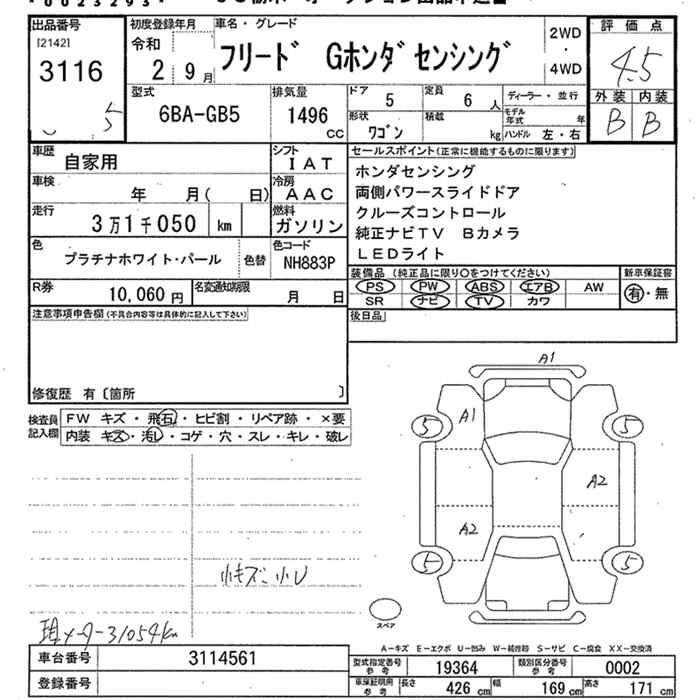 出品番号
[2142]
3116
5
初度登録年月
令和
2 9月
車名・グレード
フリード Gホンダセンシング
2WD
・
4WD
評価点
4.5
外装 内装
B B
型式
6BA-GB5
排気量
1496
cc
ドア
5
定員
6 人
形状
ワゴン
積載
kg
ディーラー・並行
モデル年式 年
ハンドル 左・右
車歴
自家用
シフト
IAT
車検
年 月( 日)
冷房
AAC
走行
3万1千050 km
燃料
ガソリン
色
プラチナホワイト・パール
色替
色コード
NH883P
R券
10,060円
名変通知期限
月 日
セールスポイント(正常に機能するものに限ります)
ホンダセンシング
両側パワースライドドア
クルーズコントロール
純正ナビTV Bカメラ
LEDライト
装備品(純正品に限り○をつけてください)
PS PW ABS エアB AW
SR ナビ TV カワ
新車保証書
有・無
後日品
注意事項申告欄(不具合内容等は具体的に記入して下さい)
修復歴 有〔箇所 〕
検査員記入欄
FW キズ・飛石・ヒビ割・リペア跡・×要
内装 キズ・汚レ・コゲ・穴・スレ・キレ・破レ
A1
A1
5
5
A2
A2
5
5
スペア
小キズ・小U
現メーター31054km
A-キズ E-エクボ U-凹み W-補修跡 S-サビ C-腐食 XX-交換済
車台番号
3114561
登録番号
型式指定番号
参考
19364
類別区分番号
参考
0002
車庫証明用
参考
長さ
426 cm
幅
169 cm
高さ
171 cm